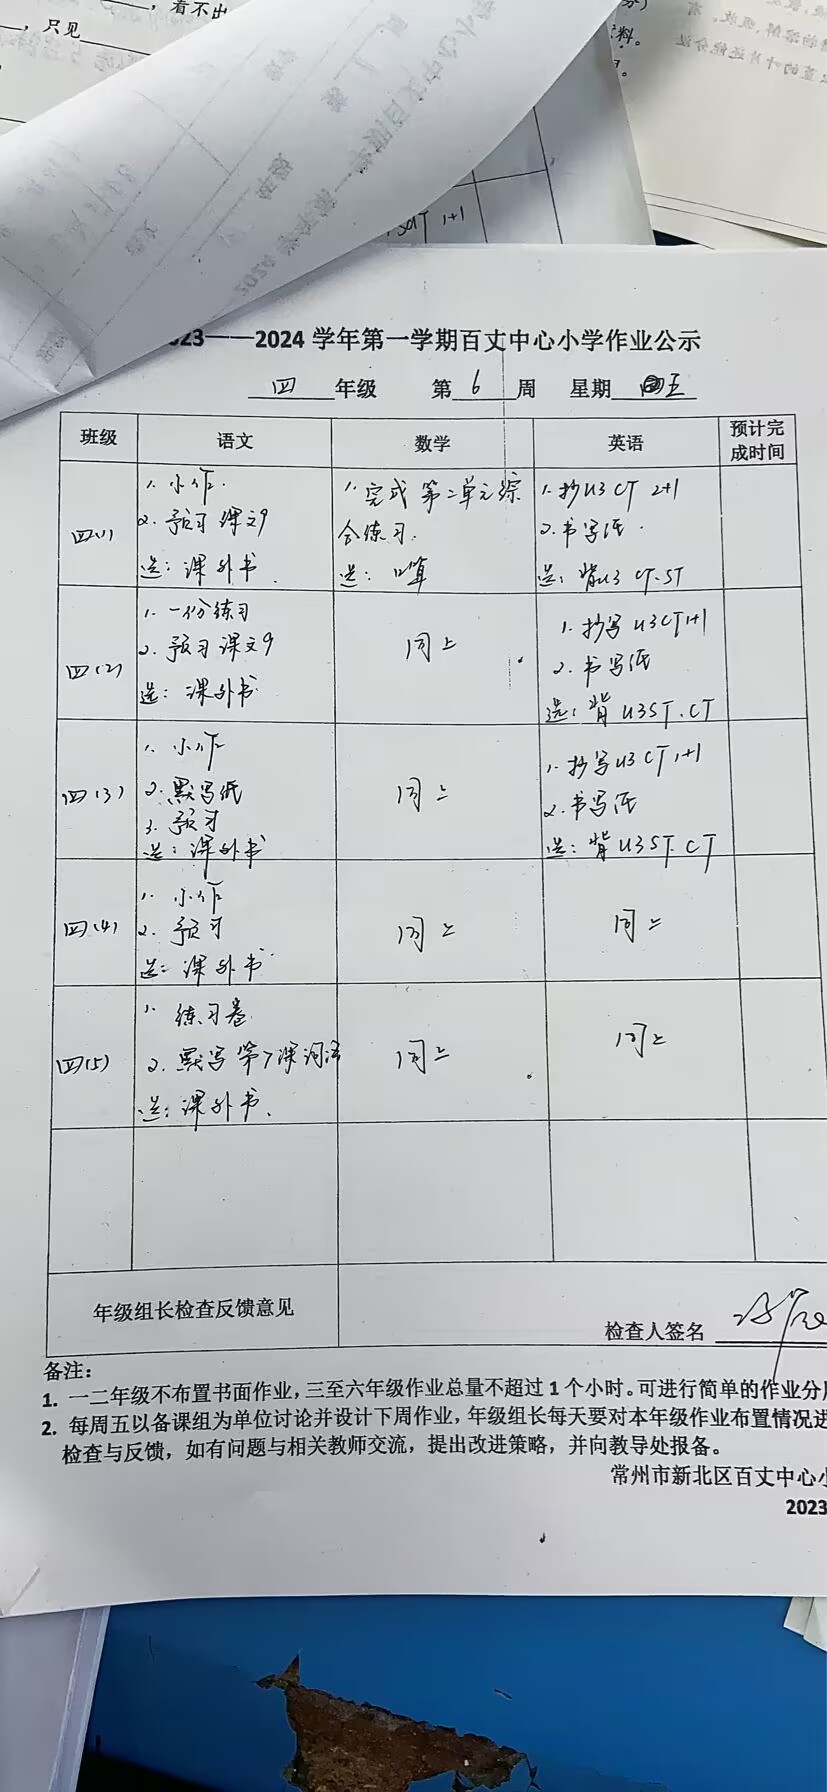 ，看不出
，只见
料。
SdT 1+1
23——2024 学年第一学期百丈中心小学作业公示
四 年级 第 6 周 星期 五
班级 语文 数学 英语 预计完成时间
四(1)
1. 小作.
2. 预习课文9
选: 课外书.
1. 完成第二单元综
合练习.
选: 口算
1. 抄U3 CT 2+1
2. 书写纸.
选: 背U3 CT.ST
四(2)
1. 一份练习
2. 预习课文9
选: 课外书.
同上
1. 抄写 U3CT1+1
2. 书写纸
选: 背 U3ST.CT
四(3)
1. 小作
2. 默写纸
3. 预习
选: 课外书
同上
1. 抄写U3 CT 1+1
2. 书写纸
选: 背 U3ST.CT
四(4)
1. 小作
2. 预习
选: 课外书.
同上
同上
四(5)
1. 练习卷
2. 默写第7课词语
选: 课外书.
同上
同上
年级组长检查反馈意见
检查人签名
备注:
1. 一二年级不布置书面作业，三至六年级作业总量不超过 1 个小时。可进行简单的作业分
2. 每周五以备课组为单位讨论并设计下周作业，年级组长每天要对本年级作业布置情况进
检查与反馈，如有问题与相关教师交流，提出改进策略，并向教导处报备。
常州市新北区百丈中心小
2023